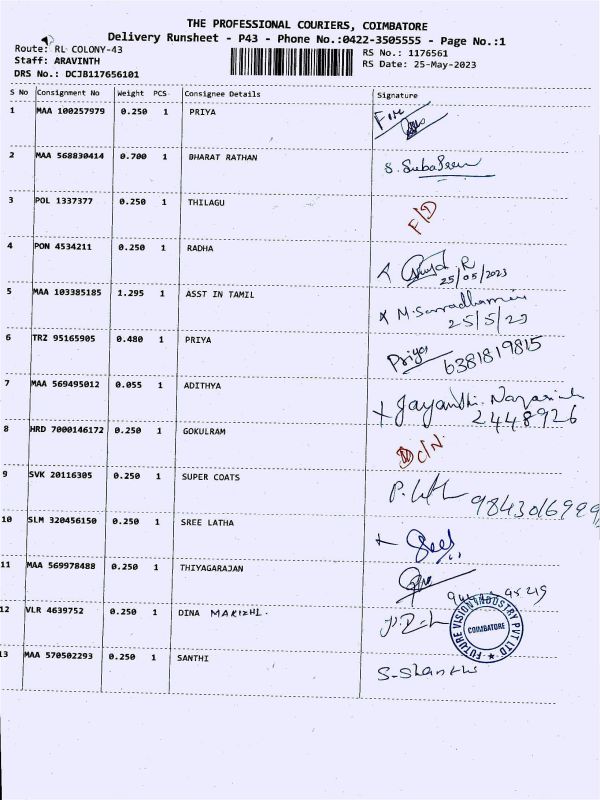 THE PROFESSIONAL COURIERS, COIMBATORE
Delivery Runsheet - P43 - Phone No.:0422-3505555 - Page No.:1
Route: RL COLONY-43 RS No.: 1176561
Staff: ARAVINTH RS Date: 25-May-2023
DRS No.: DCJB117656101
S No Consignment No Weight PCS Consignee Details Signature
1 MAA 100257979 0.250 1 PRIYA
2 MAA 568830414 0.700 1 BHARAT RATHAN S.
3 POL 1337377 0.250 1 THILAGU F/D
4 PON 4534211 0.250 1 RADHA R
25/05/2023
5 MAA 103385185 1.295 1 ASST IN TAMIL M.
25/5/23
6 TRZ 95165905 0.480 1 PRIYA Priya 6381819815
7 MAA 569495012 0.055 1 ADITHYA Jayanthi.
2448926
8 HRD 7000146172 0.250 1 GOKULRAM D/N
9 SVK 20116305 0.250 1 SUPER COATS P.
10 SLM 320456150 0.250 1 SREE LATHA
11 MAA 569978488 0.250 1 THIYAGARAJAN
12 VLR 4639752 0.250 1 DINA MAKIZHL.
FUTURE VISION INDUSTRY PVT LTD
COIMBATORE
13 MAA 570502293 0.250 1 SANTHI S-Shanthi